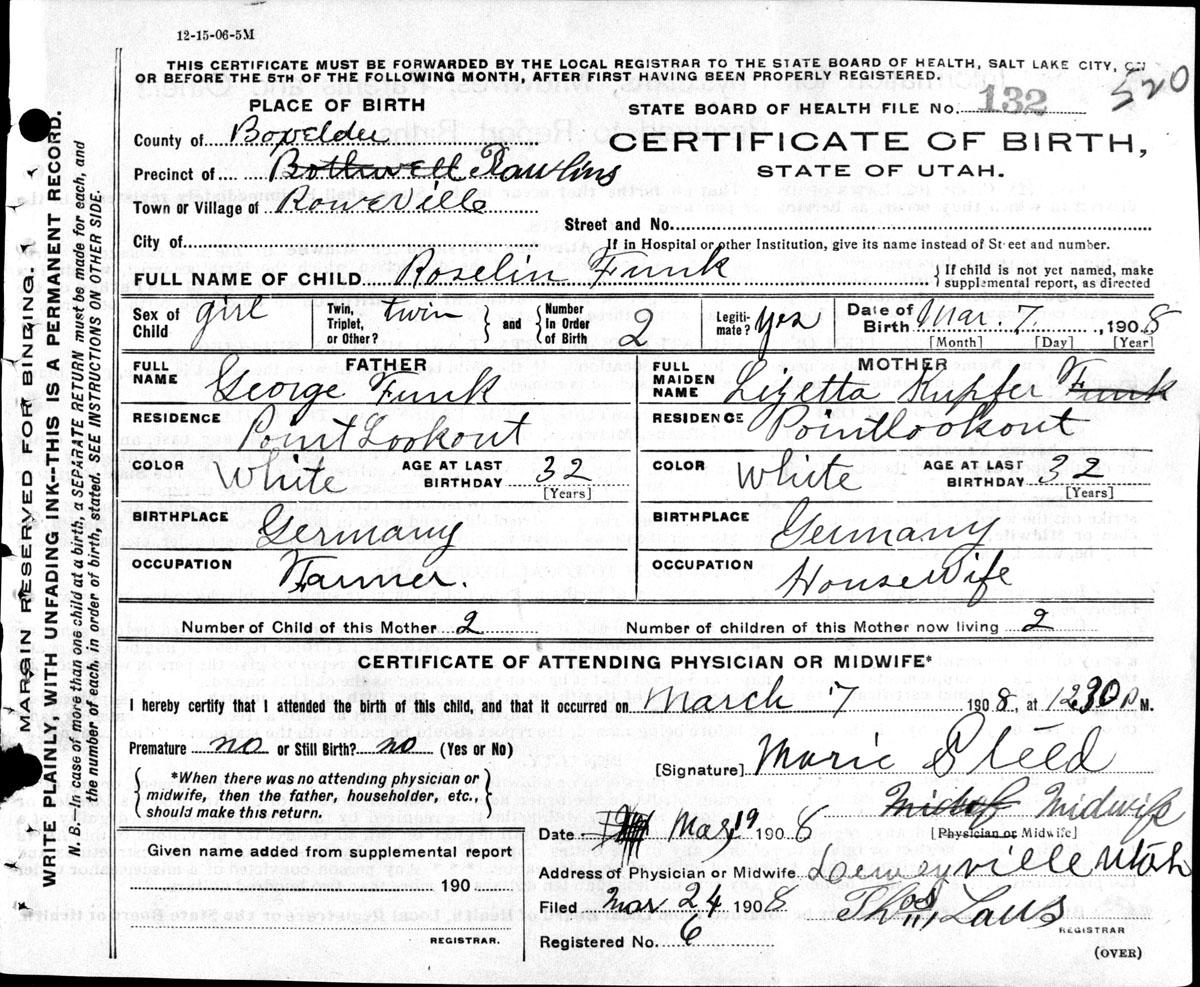 12-15-06-5M
THIS CERTIFICATE MUST BE FORWARDED BY THE LOCAL REGISTRAR TO THE STATE BOARD OF HEALTH, SALT LAKE CITY, ON
OR BEFORE THE 5TH OF THE FOLLOWING MONTH, AFTER FIRST HAVING BEEN PROPERLY REGISTERED.
520
PLACE OF BIRTH
STATE BOARD OF HEALTH FILE No. 132
County of Boxelder
CERTIFICATE OF BIRTH,
Precinct of Bothwell Rawlins
STATE OF UTAH.
Town or Village of Roweville
Street and No.
City of
If in Hospital or other Institution, give its name instead of Street and number.
FULL NAME OF CHILD Roselin Funk
If child is not yet named, make
supplemental report, as directed
Sex of Child girl Twin, Triplet, or Other? twin and Number In Order of Birth 2 Legiti-mate? Yes Date of Birth Mar. 7. , 1908
[Month] [Day] [Year]
FATHER
FULL NAME George Funk
RESIDENCE Point Lookout
COLOR White AGE AT LAST BIRTHDAY 32
[Years]
BIRTHPLACE Germany
OCCUPATION Farmer.
MOTHER
FULL MAIDEN NAME Lizetta Kupfer Funk
RESIDENCE Pointlookout
COLOR White AGE AT LAST BIRTHDAY 32
[Years]
BIRTHPLACE Germany
OCCUPATION HouseWife
Number of Child of this Mother 2 Number of children of this Mother now living 2
CERTIFICATE OF ATTENDING PHYSICIAN OR MIDWIFE*
I hereby certify that I attended the birth of this child, and that it occurred on March 7 1908, at 1230 P M.
Premature no or Still Birth? no (Yes or No)
[Signature] Marie Steed
*When there was no attending physician or
midwife, then the father, householder, etc.,
should make this return.
Midwife
Date Mar 19 1908 [Physician or Midwife]
Given name added from supplemental report
Address of Physician or Midwife Deweyville Utah
190
Filed Mar 24 1908 Thos Laws
REGISTRAR
REGISTRAR.
Registered No. 6
(OVER)
MARGIN RESERVED FOR BINDING.
WRITE PLAINLY WITH UNFADING INK--THIS IS A PERMANENT RECORD.
N. B.—In case of more than one child at a birth, a SEPARATE RETURN must be made for each, and
the number of each, in order of birth, stated. SEE INSTRUCTIONS ON OTHER SIDE.